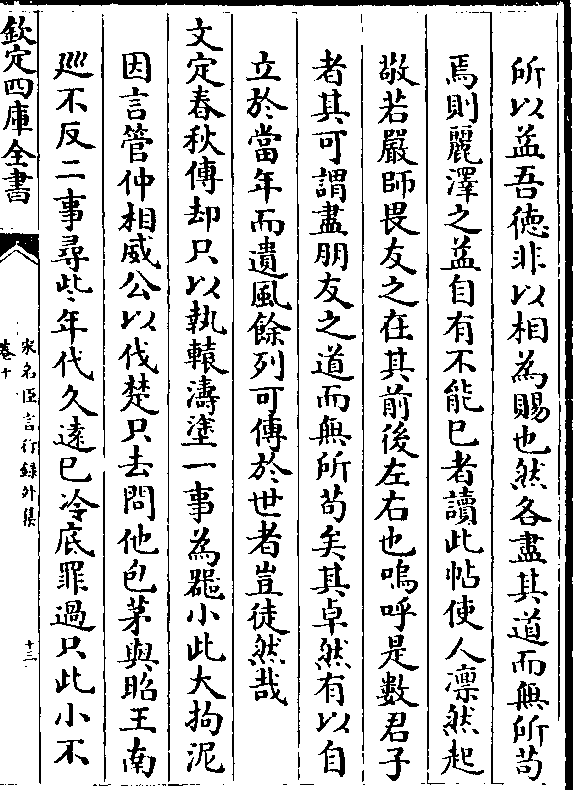 所以益吾徳非以相為賜也然各盡其道而無所苟
焉則麗澤之益自有不能已者讀此帖使人凛然起
敬若嚴師畏友之在其前後左右也嗚呼是數君子
者其可謂盡朋友之道而無所苟矣其卓然有以自
立於當年而遺風餘列可傳於世者豈徒然哉
文定春秋傳却只以執轅濤塗一事為噐小此大拘泥
因言管仲相威公以伐楚只去問他包茅與昭王南
廵不反二事尋此年代久遠已冷底罪過只此小不
欽定四庫全書
宋名臣言行録外集
卷十
十三